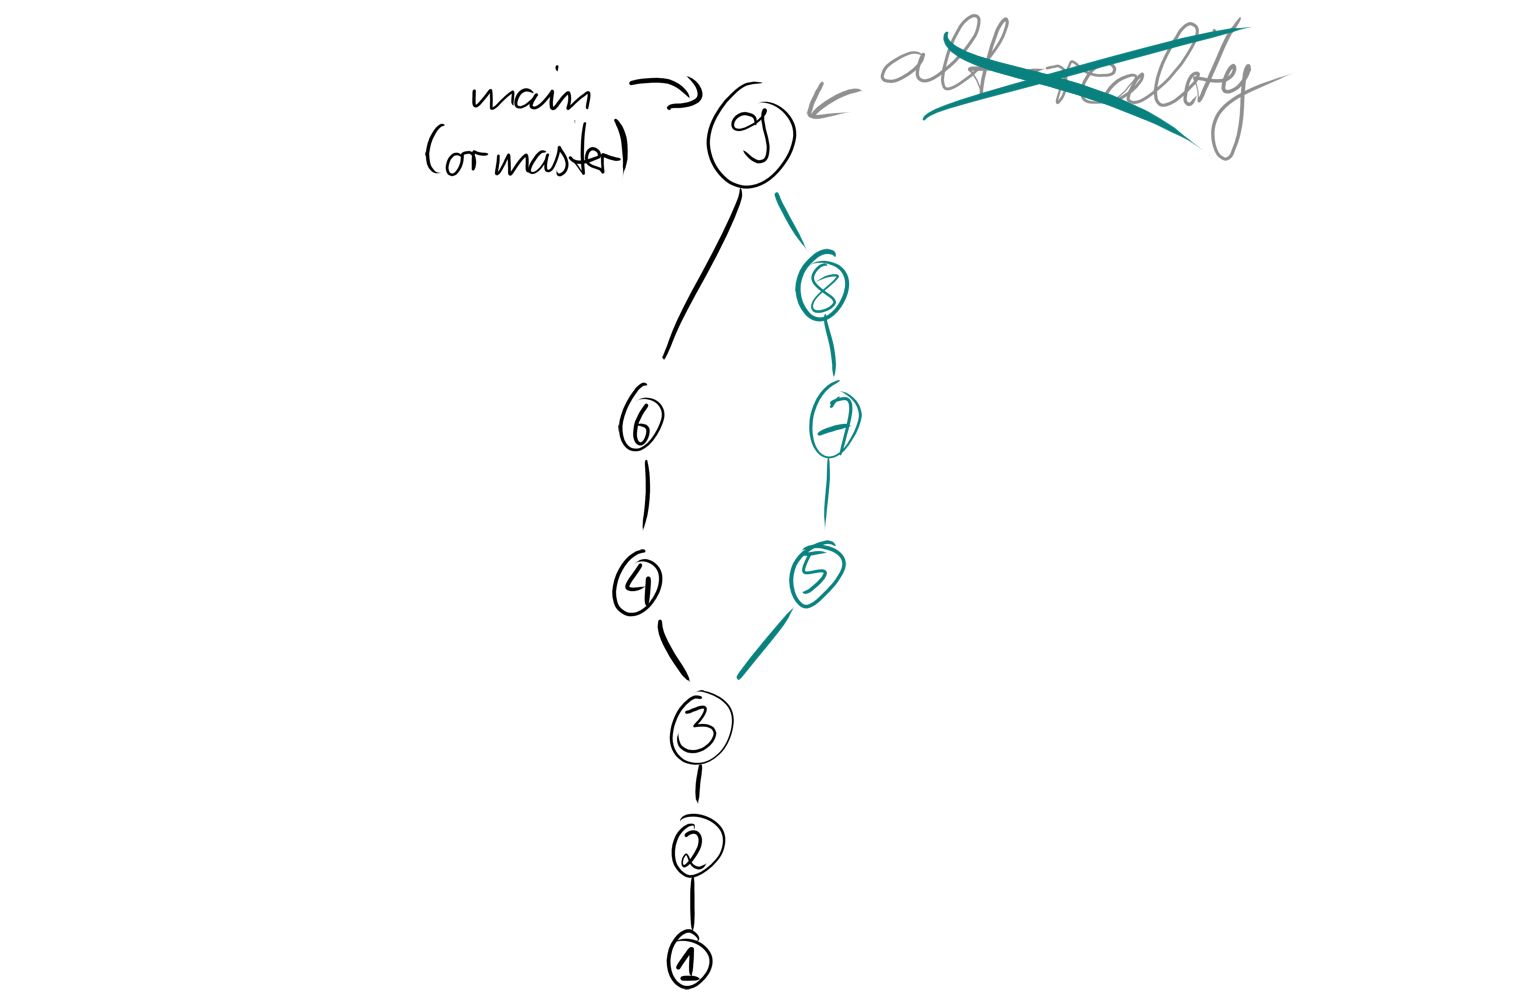 main
(or master)
alt-reality
9
8
6
7
4
5
3
2
1